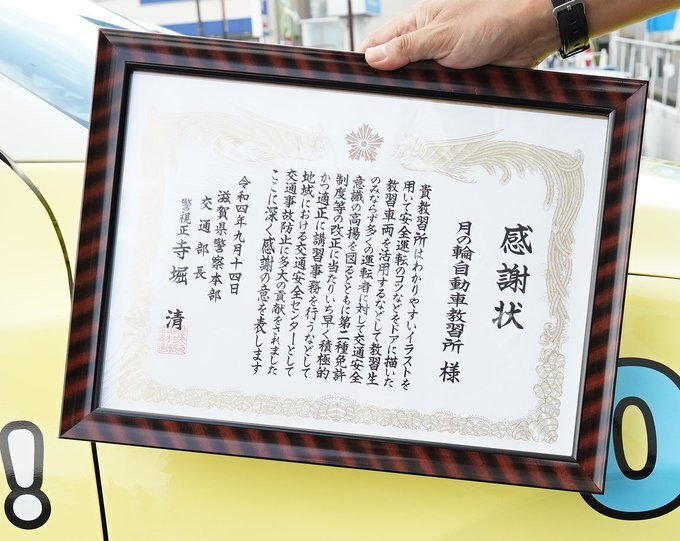 感謝状
月の輪自動車教習所 様
貴教習所はわかりやすいイラストを
用いて安全運転のコツなどをドアに描いた
教習車両を活用するなどして教習生
のみならず多くの運転者に対して交通安全
意識の高揚を図るとともに第二種免許
制度等の改正に当たりいち早く積極的
かつ適正に講習事務を行うなどして
地域における交通安全センターとして
交通事故防止に多大の貢献をされました
ここに深く感謝の意を表します
令和四年九月十四日
滋賀県警察本部
交通部長
警視正 寺堀 清
!
0